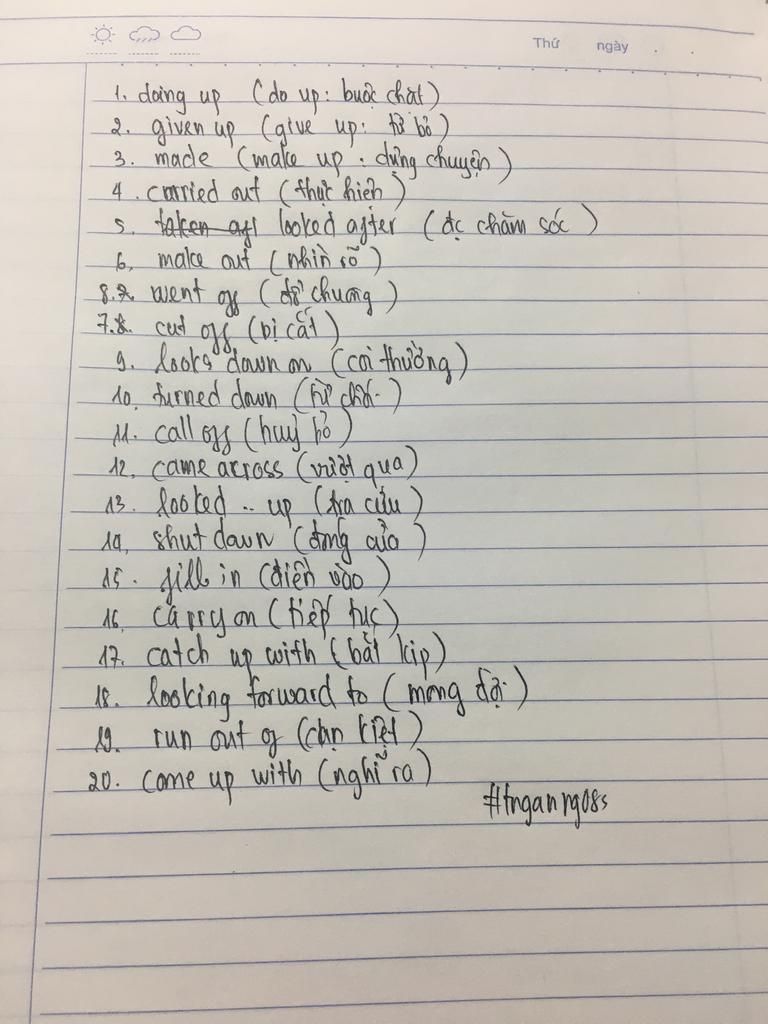 Thứ ngày . .
1. doing up (do up: buộc chặt)
2. given up (give up: từ bỏ)
3. made (make up: dựng chuyện)
4. carried out (thực hiện)
5. taken aft looked after (đc chăm sóc)
6. make out (nhìn rõ)
8. 7. went off (đổ chuông)
7. 8. cut off (bị cắt)
9. looks down on (coi thường)
10. turned down (từ chối)
11. call off (huỷ bỏ)
12. came across (vượt qua)
13. looked .. up (tra cứu)
14. shut down (đóng cửa)
15. fill in (điền vào)
16. carry on (tiếp tục)
17. catch up with (bắt kịp)
18. looking forward to (mong đợi)
19. run out of (cạn kiệt)
20. come up with (nghĩ ra)